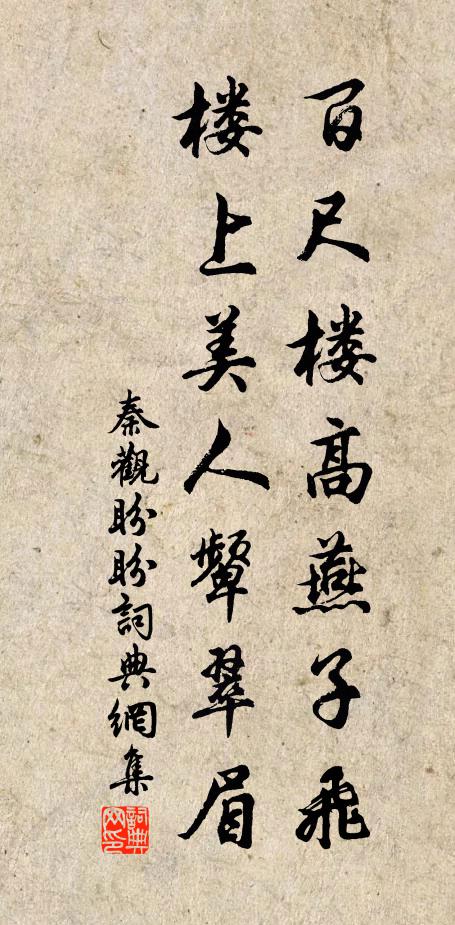 百尺楼高燕子飛
楼上美人颦翠眉
秦觀盼盼詞典網集
詞典网印